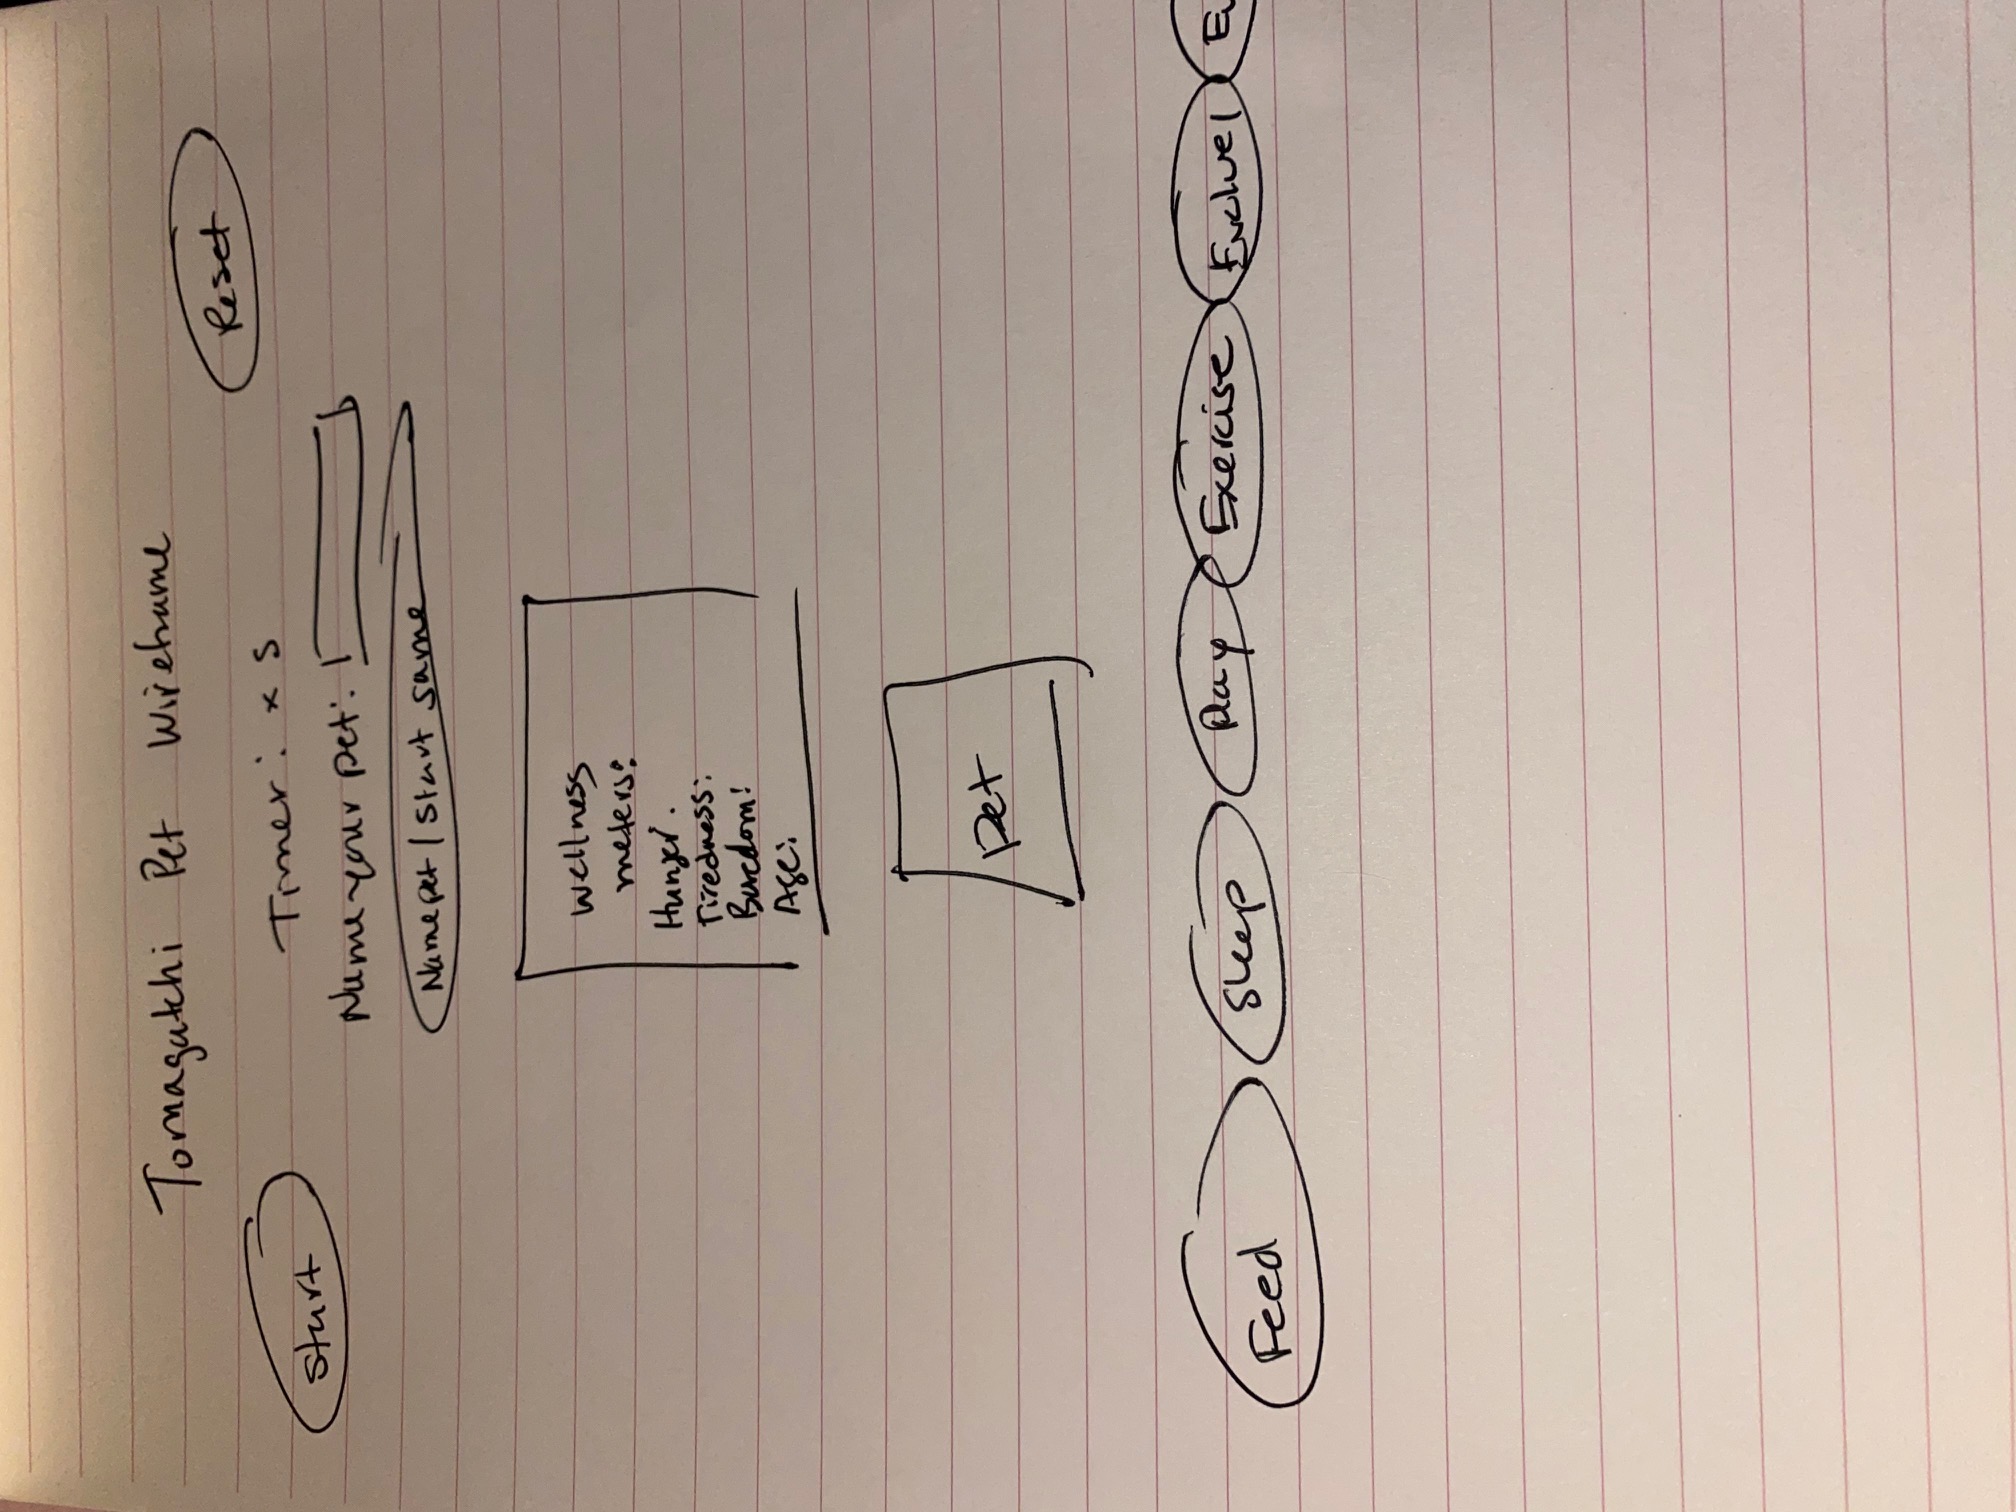 Tomagatchi Pet Wireframe
Reset
Start
Timer: x s
Name your pet:
Name pet / Start game
Wellness
meters:
Hunger:
Tiredness:
Boredom:
Age:
Pet
Feed Sleep Play Exercise Evolve1